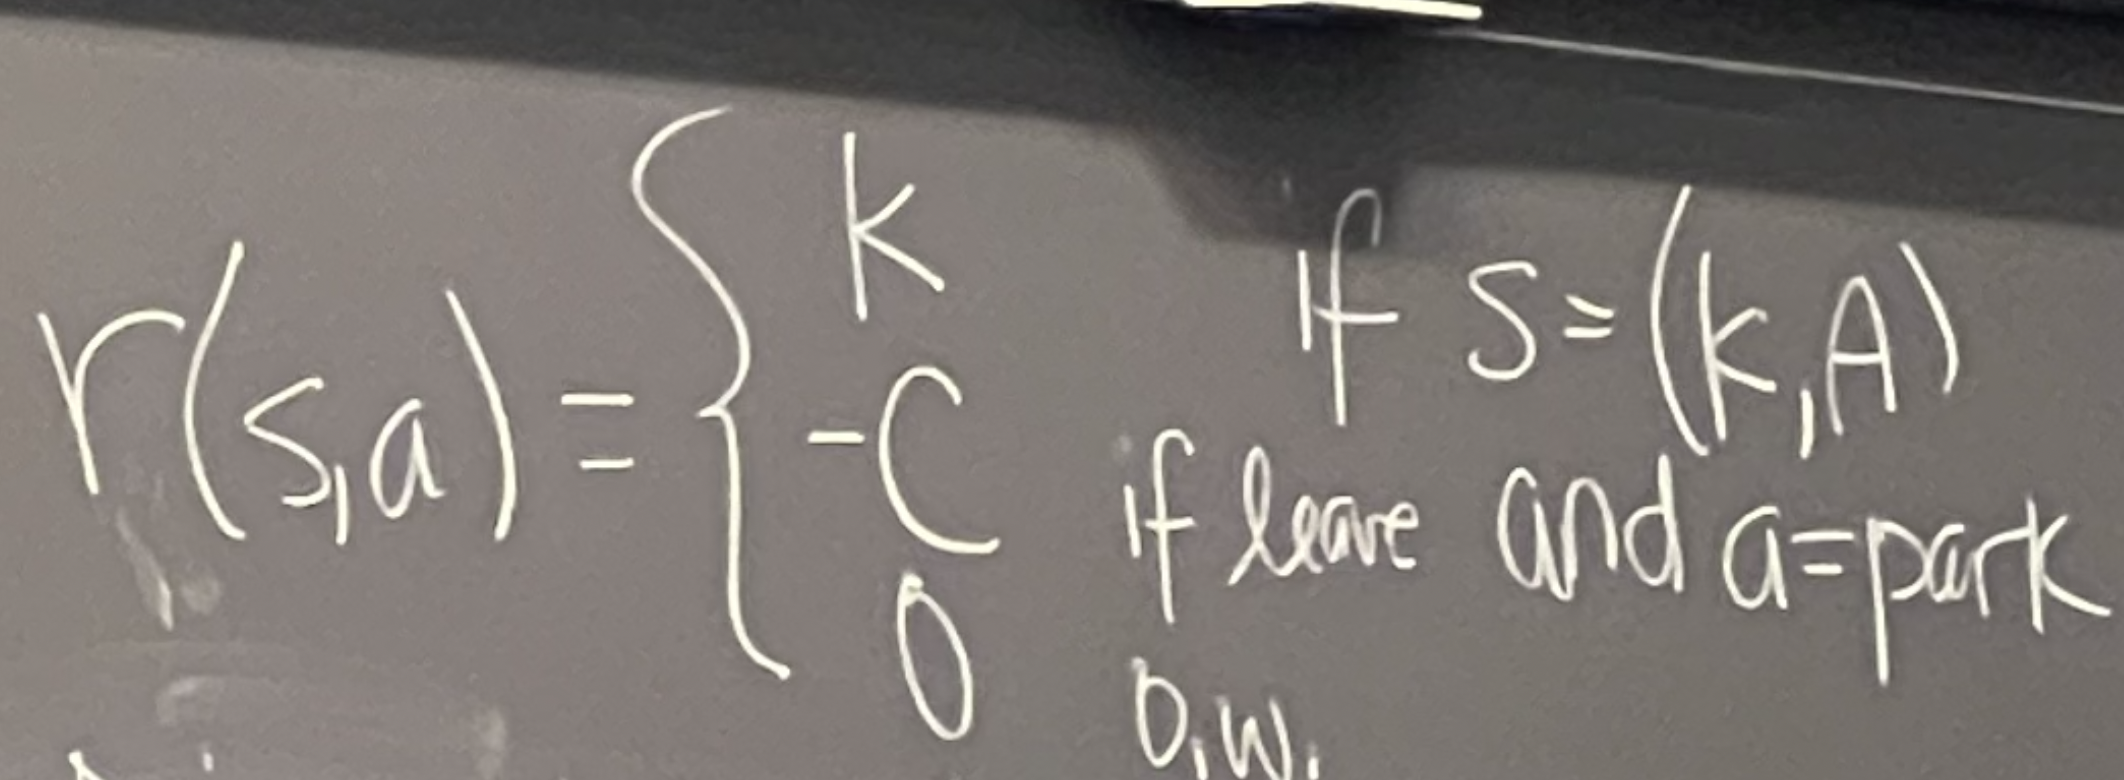 r(s,a) = { k if s=(k,A)
-C if leave and a=park
0 o.w.